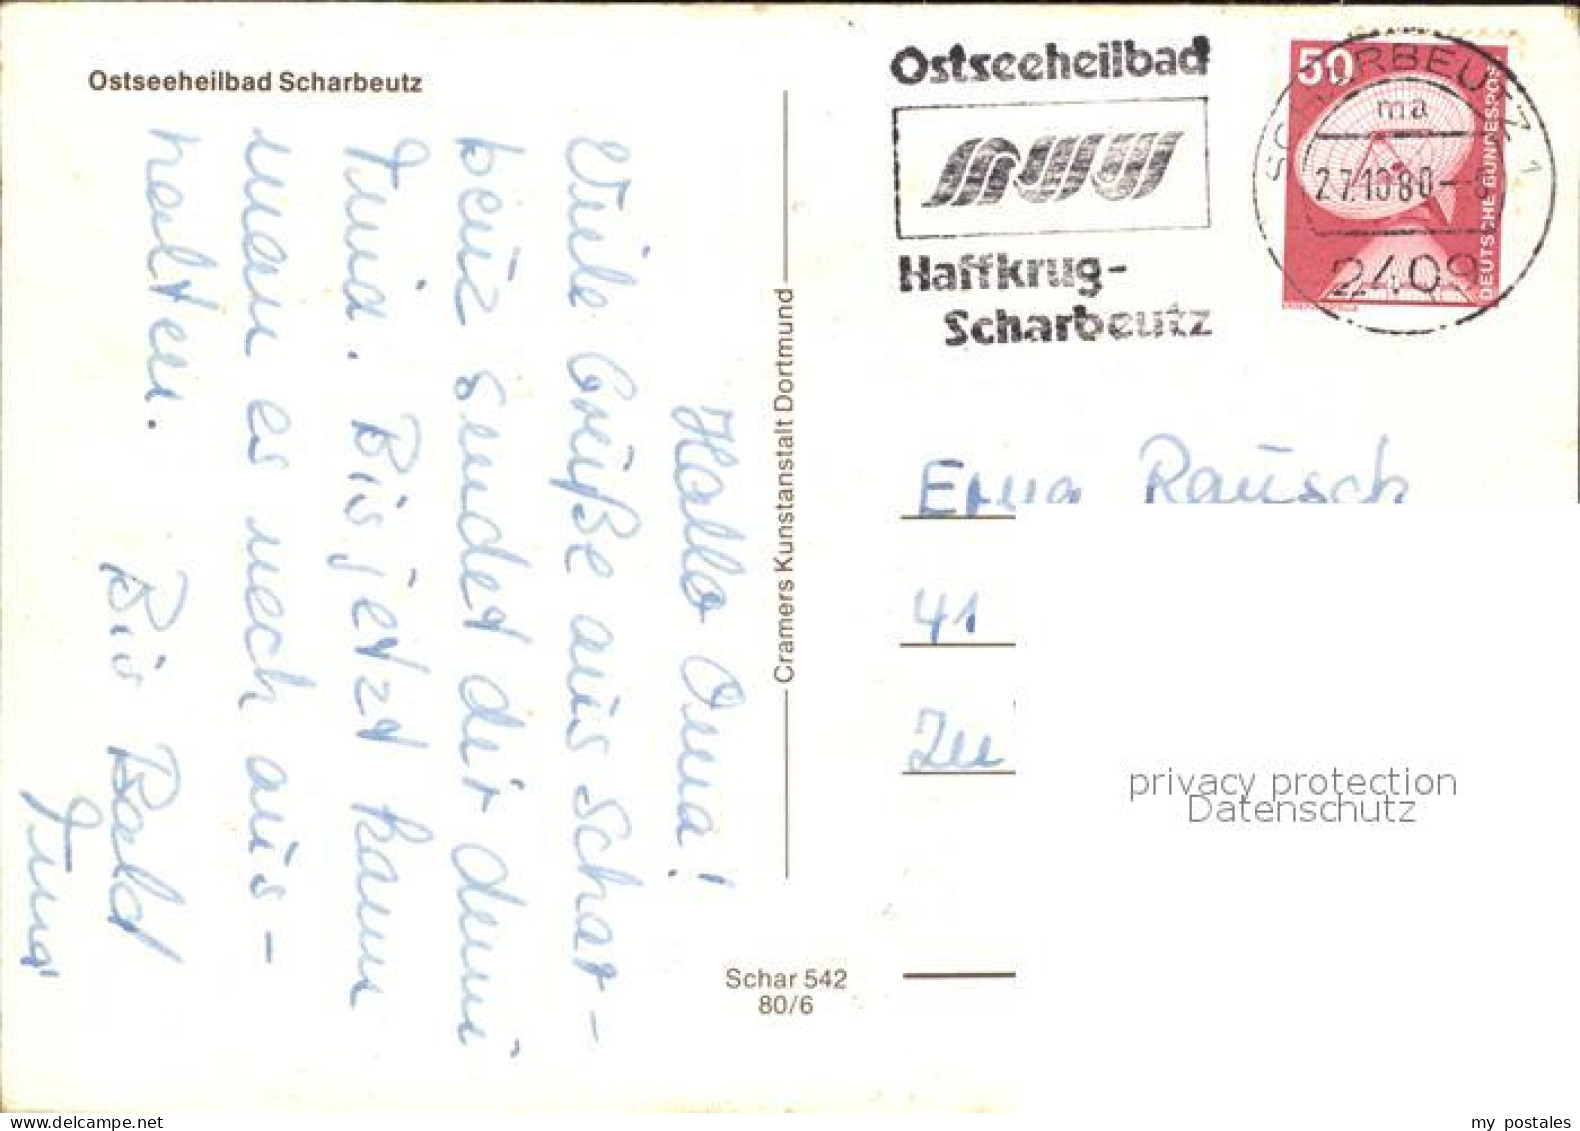 Ostseeheilbad Scharbeutz
Hallo Oma!
Viele Grüße aus Schar-
beuz sendet dir deini
Inia. Bis jetzt kann
man es noch aus-
halten.
Bis Bald
Cramers Kunstanstalt Dortmund
Schar 542
80/6
Ostseeheilbad
Haffkrug-
Scharbeutz
50
DEUTSCHE BUNDESPOST
SCHARBEUTZ 1
ma
27.10.80
2409
Erna Rausch
41
privacy protection
Datenschutz
my postales